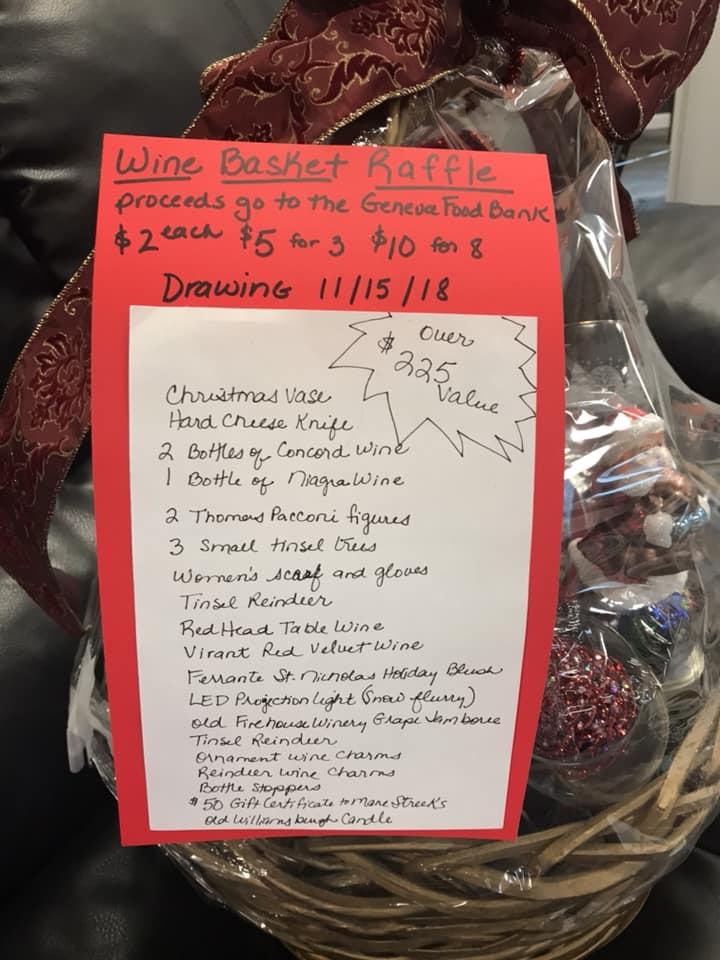 Wine Basket Raffle
proceeds go to the Geneva Food Bank
$2 each $5 for 3 $10 for 8
Drawing 11/15/18
Over
$225
Value
Christmas Vase
Hard Cheese Knife
2 Bottles of Concord Wine
1 Bottle of Niagra Wine
2 Thomas Pacconi figures
3 Small tinsel trees
Women's scarf and gloves
Tinsel Reindeer
Red Head Table Wine
Virant Red Velvet Wine
Ferrante St. Nicholas Holiday Blush
LED Projection light (Snow flurry)
Old Firehouse Winery Grape Jamboree
Tinsel Reindeer
Ornament wine charms
Reindeer wine charms
Bottle Stoppers
$50 Gift Certificate to Mane Streeks
Old Williamsburgh Candle